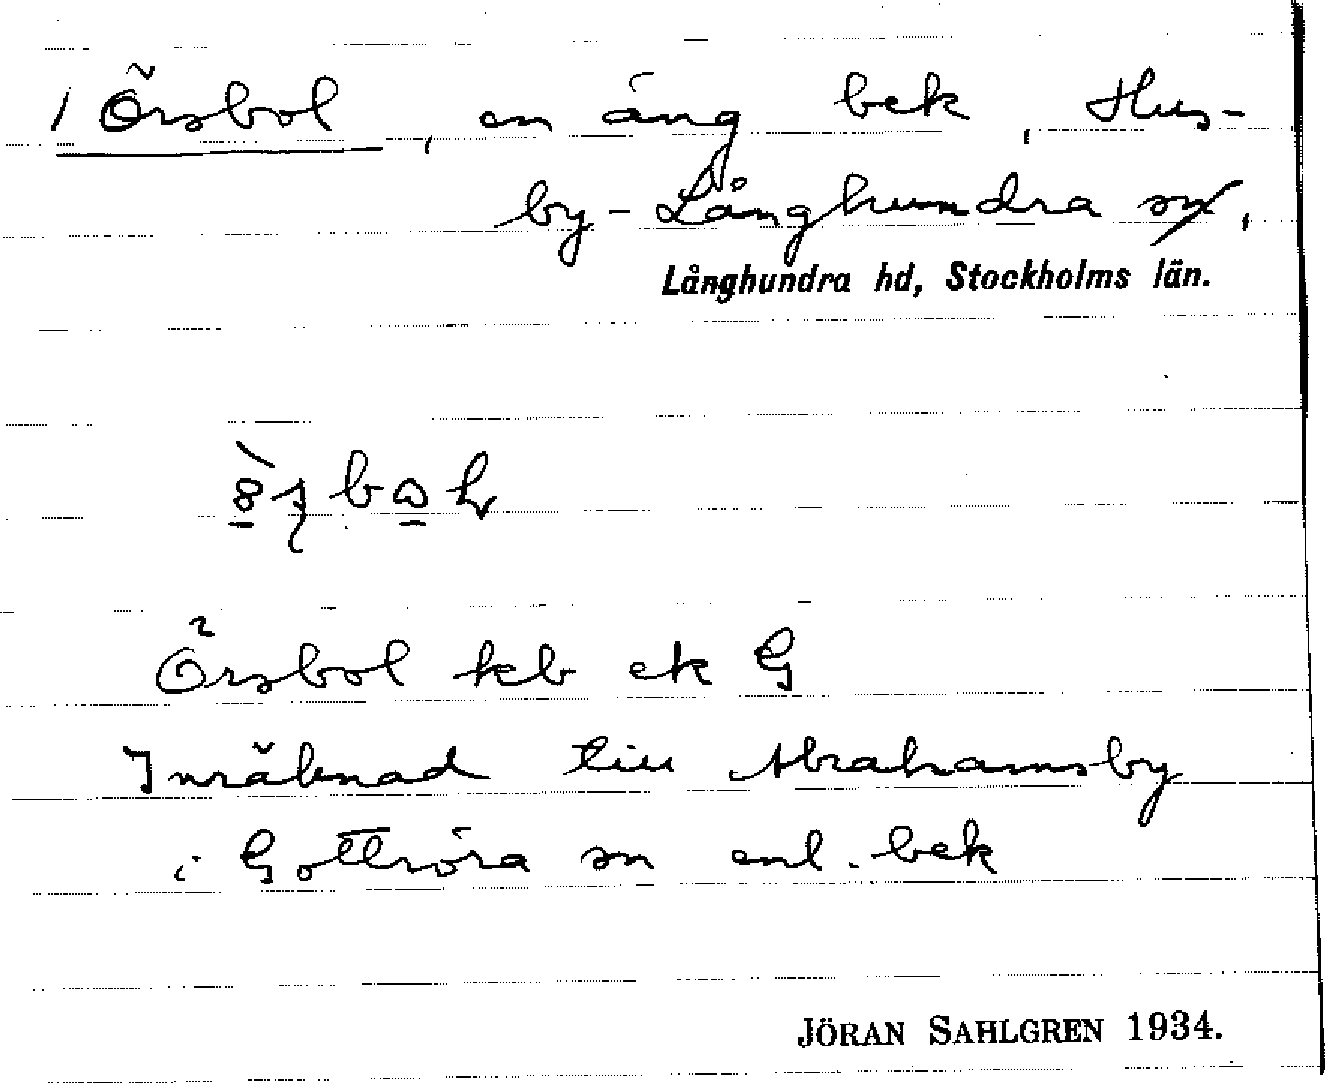 / Örsbol, en äng bek, Hus-
by-Långhundra sn,
Långhundra hd, Stockholms län.
Örsbol kb ek G
Inräknad till Abrahamsby
i Gottröra sn enl. bek
JÖRAN SAHLGREN 1934.